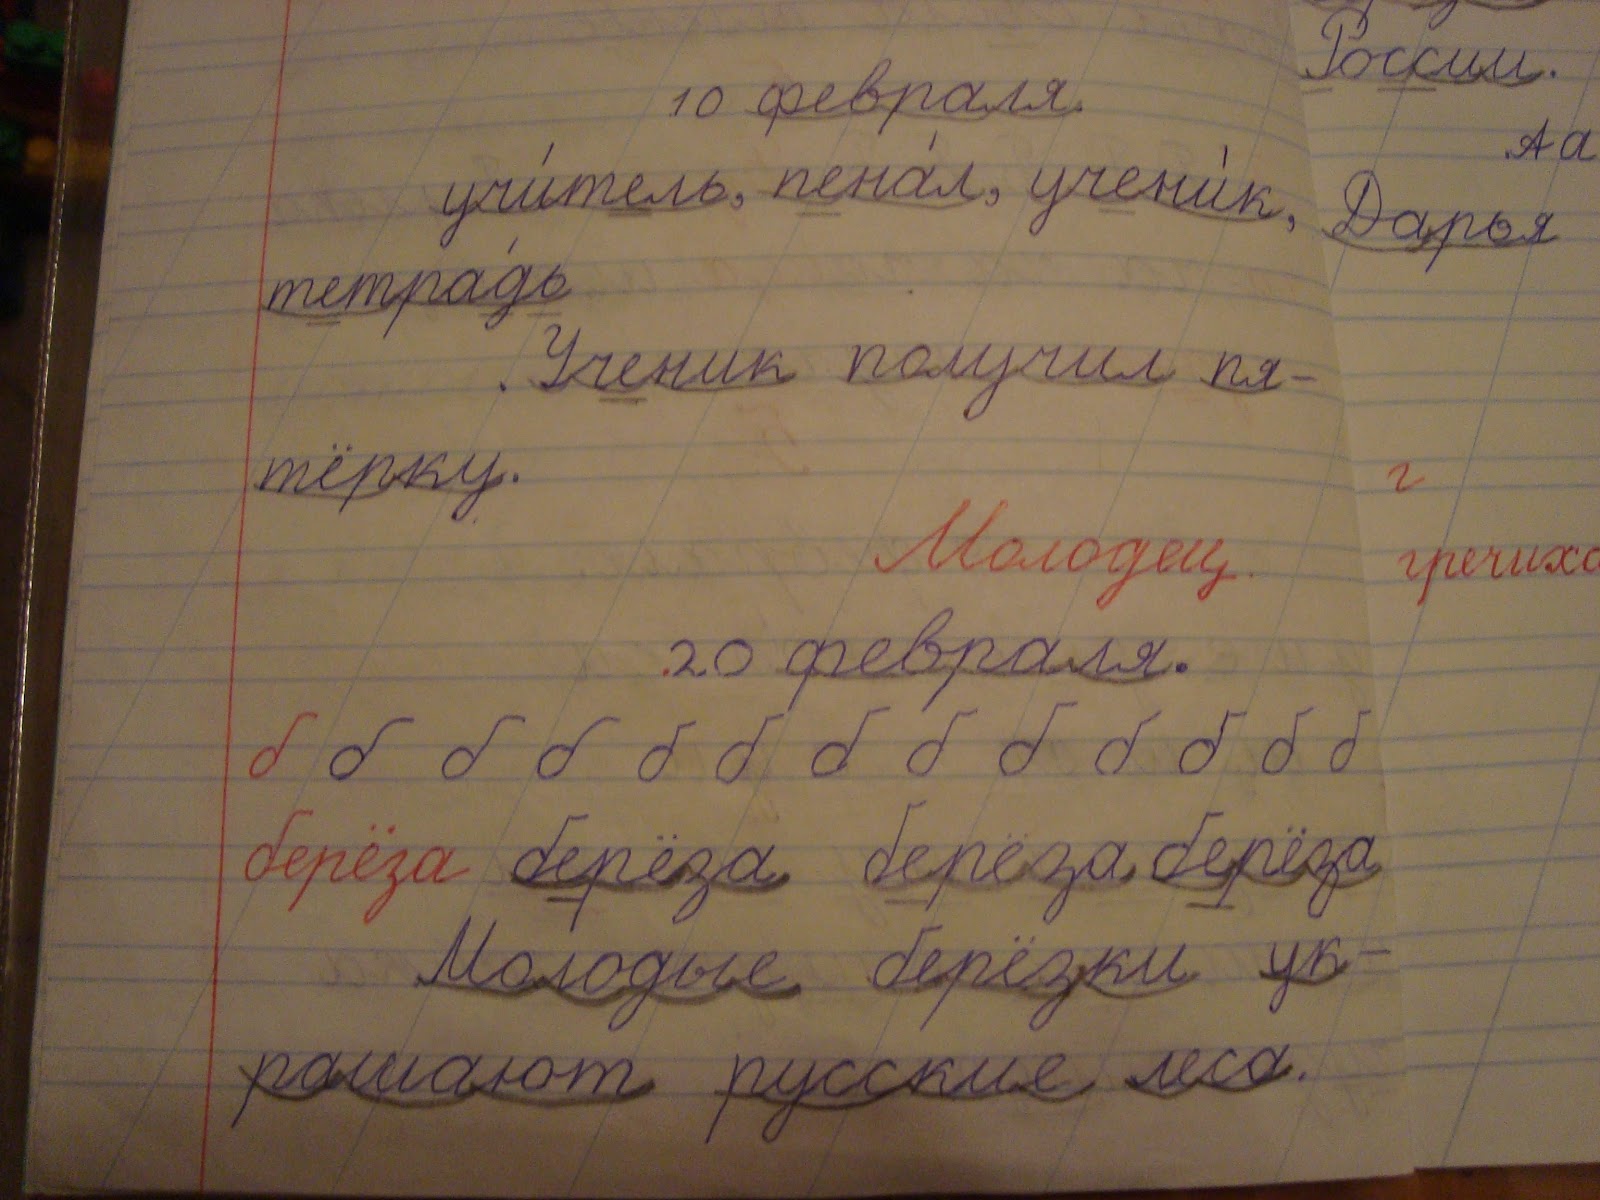 10 февраля.
учи́тель, пена́л, учени́к,
тетра́дь
Ученик получил пя-
тёрку.
Молодец.
20 февраля.
б б б б б б б б б б б б б
берёза берёза берёза берёза
Молодые берёзки ук-
рашают русские леса.
России.
Аа
Дарья
г
гречиха